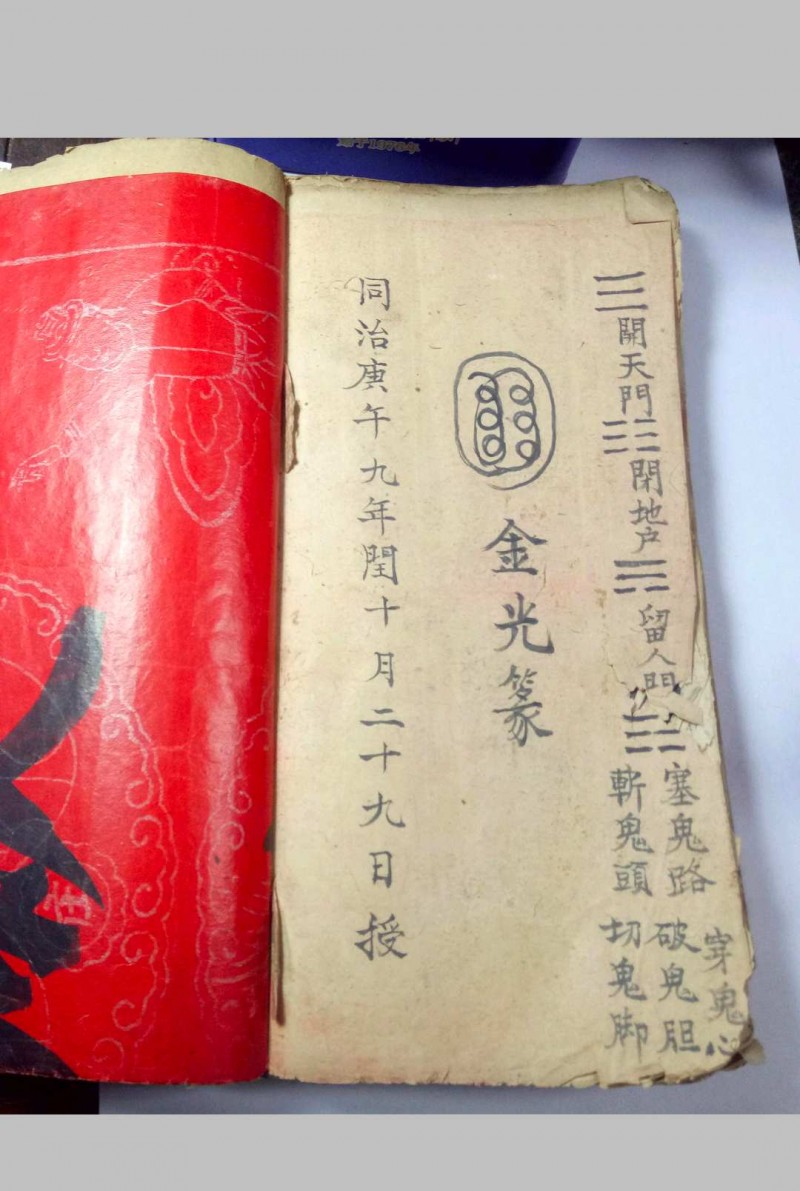 ☰開天門
☷閉地户
留人門
塞鬼路
斬鬼頭
穿鬼心
破鬼胆
切鬼脚
金光篆
同治庚午九年閏十月二十九日授